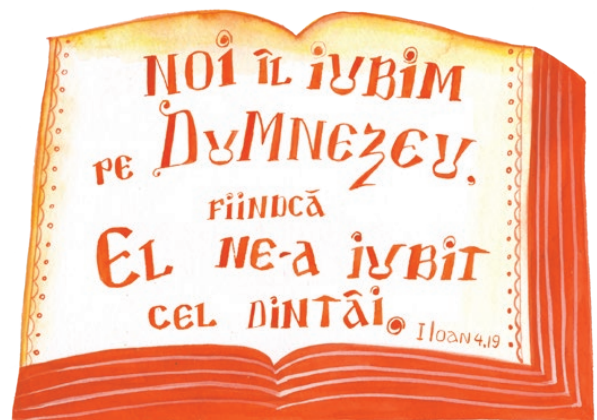 NOI ÎL IUBIM
PE DUMNEZEU.
FIINDCĂ
EL NE-A IUBIT
CEL DINTÂI.
I IOAN 4.19